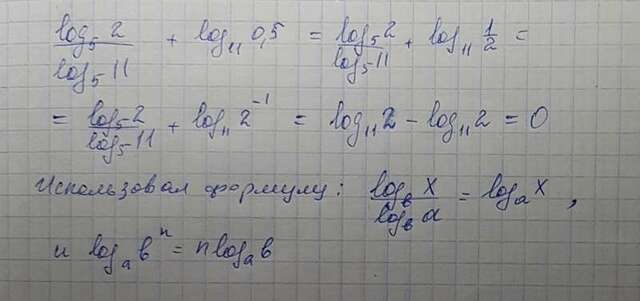 log₅ 2 / log₅ 11 + log₁₁ 0,5 = log₅ 2 / log₅ 11 + log₁₁ 1/2 =
= log₅ 2 / log₅ 11 + log₁₁ 2⁻¹ = log₁₁ 2 - log₁₁ 2 = 0
Использовал формулу: log_в x / log_в a = logₐ x ,
и logₐ вⁿ = n logₐ в